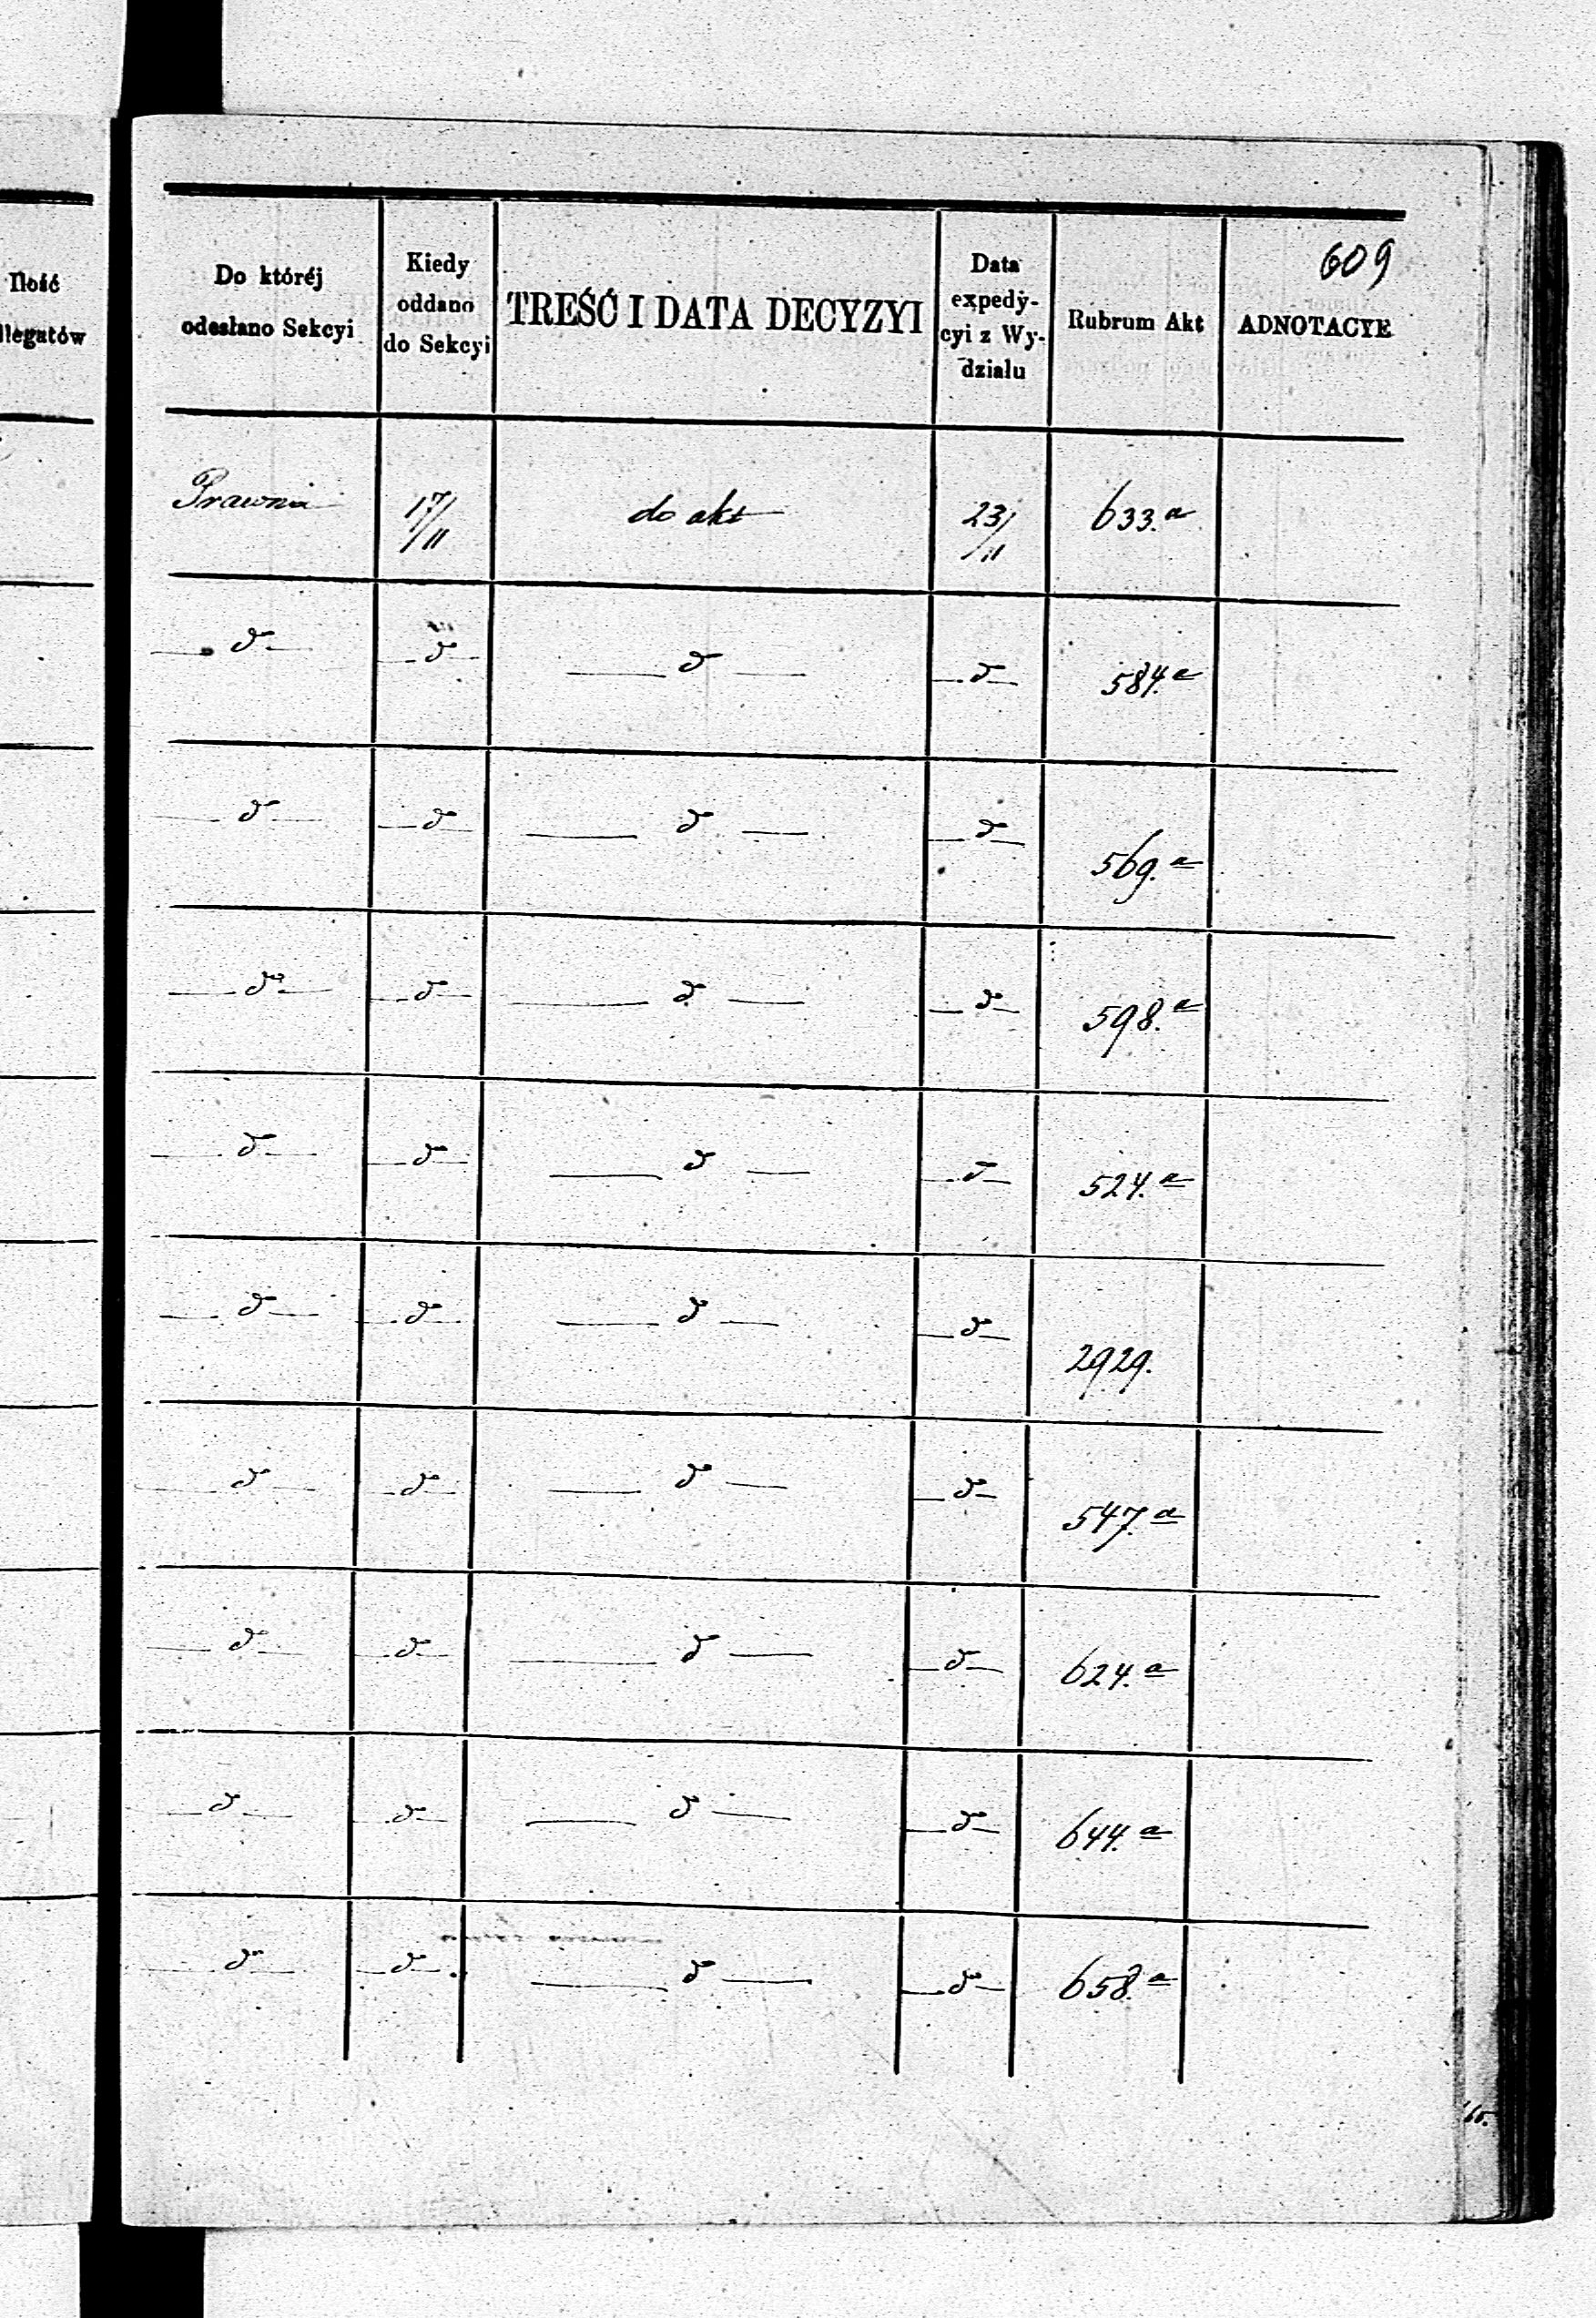 609
Ilość
llegatów
Do któréj
odesłano Sekcyi
Kiedy
oddano
do Sekcyi
TREŚĆ I DATA DECYZYI
Data
expedy-
cyi z Wy-
działu
Rubrum Akt
ADNOTACYE
Prawna 17/11 do akt 23/11 633.a
— d — — d — — d — — d — 584.a
— d — — d — — d — — d — 569.a
— d — — d — — d — — d — 598.a
— d — — d — — d — — d — 524.a
— d — — d — — d — — d — 2929.
— d — — d — — d — — d — 547.a
— d — — d — — d — — d — 624.a
— d — — d — — d — — d — 644.a
— d — — d — — d — — d — 658.a